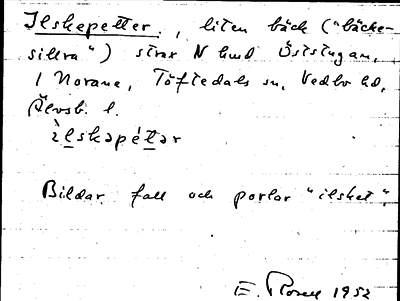 Ilskepetter, liten bäck ("bäcke-
sikra") strax N lmd Öststugan,
i Norane, Töftedals sn, Vedbo hd,
Älvsb. l.
ìlskəpétər
Bildar fall och porlar "ilsket".
E. Rosell 1952